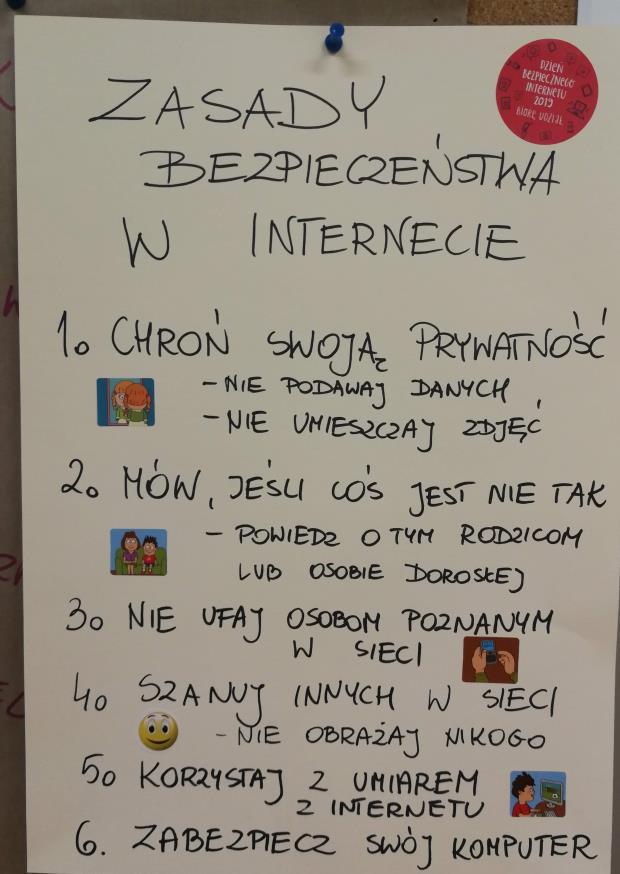 DZIEŃ
BEZPIECZNEGO
INTERNETU
2019
BIORĘ UDZIAŁ
ZASADY
BEZPIECZEŃSTWA
W INTERNECIE
1. CHROŃ SWOJĄ PRYWATNOŚĆ
- NIE PODAWAJ DANYCH
- NIE UMIESZCZAJ ZDJĘĆ
2. MÓW, JEŚLI COŚ JEST NIE TAK
- POWIEDZ O TYM RODZICOM
LUB OSOBIE DOROSŁEJ
3. NIE UFAJ OSOBOM POZNANYM
W SIECI
4. SZANUJ INNYCH W SIECI
- NIE OBRAŻAJ NIKOGO
5. KORZYSTAJ Z UMIAREM
Z INTERNETU
6. ZABEZPIECZ SWÓJ KOMPUTER